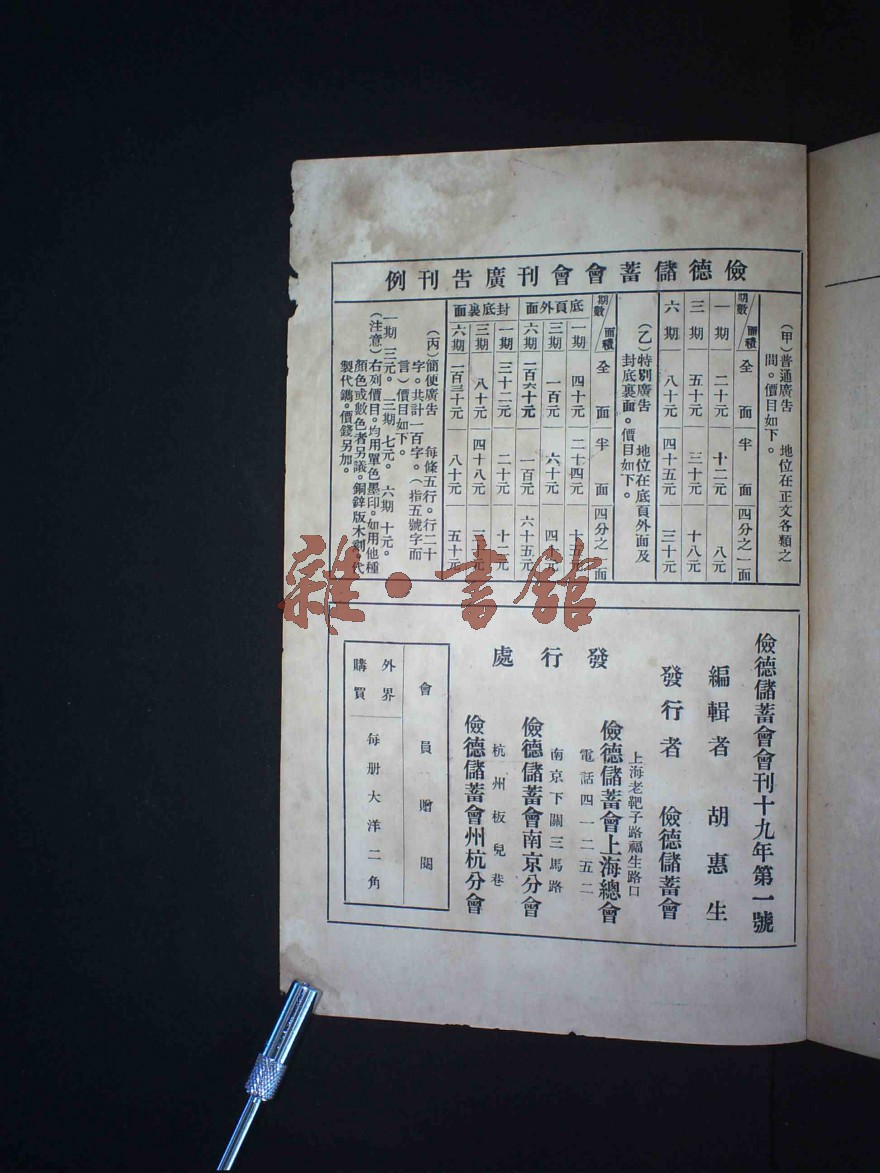 儉德儲蓄會會刊廣告刊例
（甲）普通廣告　地位在正文各類之
間。價目如下。
期數　面積　全面　半面　四分之一面
一期　二十元　十二元　八元
三期　五十元　三十元　十八元
六期　八十元　四十五元　三十元
（乙）特別廣告　地位在底頁外面及
封底裏面。價目如下。
期數　面積　全面　半面　四分之一面
底頁外面
一期　四十元　二十四元
三期　一百元　六十元
六期　一百六十元　一百元　六十五元
封底裏面
一期　三十二元　二十元　十二元
三期　八十元　四十八元
六期　一百三十元　八十元　五十元
（丙）簡便廣告　每條五行。行二十
字。共計一百字。（指五號字而
言）價目如下。
一期　三元。　三期　七元。　六期　十元。
（注意）右列價目。均用單色墨印。如用他種
顏色或數色者另議。銅鋅版木刻。代
製代鐫。價錢另加。
儉德儲蓄會會刊十九年第一號
編輯者　胡惠生
發行者　儉德儲蓄會
發行處
上海老靶子路福生路口
儉德儲蓄會上海總會
電話四一二五二
南京下關三馬路
儉德儲蓄會南京分會
杭州板兒巷
儉德儲蓄會州杭分會
會員贈閱
外界購買　每册大洋二角
雜·書館